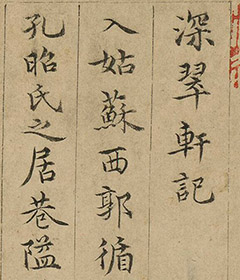 深翠軒記
入姑蘇西郭循
孔昭氏之居巷隘